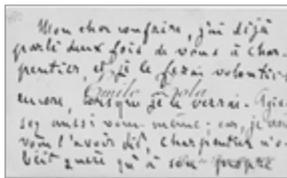 Mon cher confrère, j'ai déjà
parlé deux fois de vous à Char-
pentier, et je le ferai volontiers
Emile Zola
encore, lorsque je le verrai. Agis-
sez aussi vous-même; car, je crois
vous l'avoir dit, Charpentier n'o-
béit guère qu'à son propre